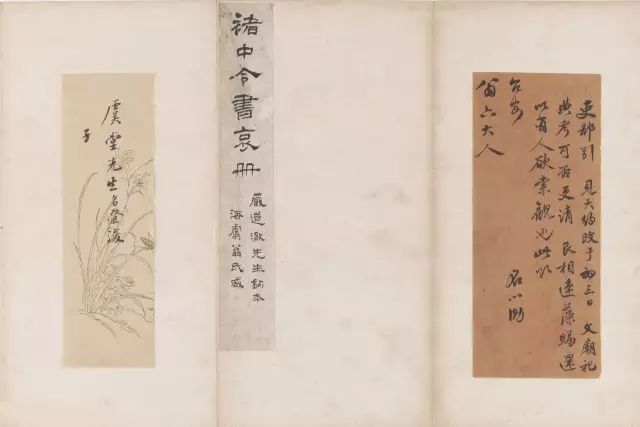 吏部引 見大約改于初三日 文廟祀
典考可否更請 艮相速藻賜還
以有人欲索觀也此叩
台安 名心泐
翁六大人
褚中令書哀冊
嚴道澂先生鉤本
海虞翁氏臧
虞堂先生名